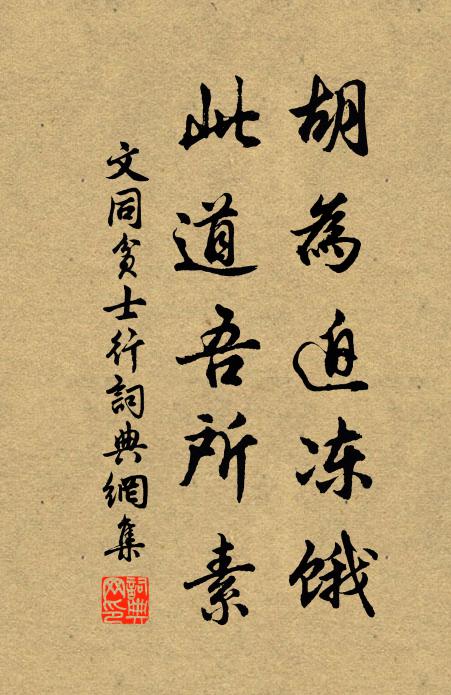 胡為迫冻餓
此道吾所素
文同貧士行詞典網集
詞典網印